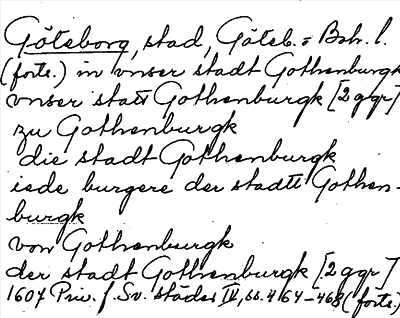 Göteborg, stad, Göteb.- o. Boh. l.
(forts.) in vnser stadt Gothenburgk
vnser statt Gothenburgk [2 ggr]
zu Gothenburgk
die stadt Gothenburgk
iede burgere der stadtt Gothen-
burgk
von Gothenburgk
der stadt Gothenburgk [2 ggr]
1607 Priv. f. Sv. städer IV, ss. 464-468 (forts.)